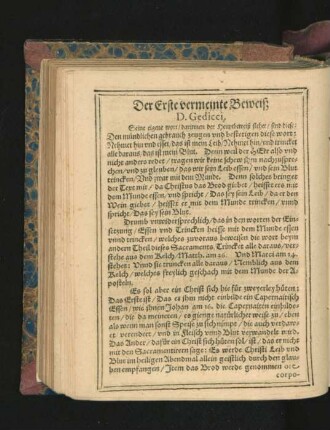 Der Erste vermeinte Beweiß
D. Gedicci,
Seine eigne wort / darinnen der Hauptbeweiß stehet / sind diese:
Den mündlichen gebrauch zeugen und bekrefftigen diese wort:
Nehmet hin und esset, das ist mein Leib, Nehmet hin / und trincket
alle daraus, das ist mein Blut. Denn weil der HErr also und
nicht anders redet / tragen wir keine schew Ihm nachzuspre-
chen / und zu gleuben / das wir sein Leib essen / und sein Blut
trincken / Und zwar mit dem Munde. Denn solches bringet
der Text mit / da Christus das Brod giebet / heisst ers mit
dem Munde essen, und spricht / Das sey sein Leib / da er den
Wein giebet / heisst er mit dem Munde trincken / vnnd
spricht / Das sey sein Blut.
Drumb unwidersprechlich / das in den worten der Ein-
setzung / Essen und Trincken heisst mit dem Munde essen
vnnd trincken / welches zuvoraus bewust den wort beym
andern Theil dieses Sacraments, Trincket alle daraus / ver-
stehe aus dem Kelch / Matth. am 26. Und Marci am 14.
stehet: Vnnd sie truncken alle daraus / Nemblich aus dem
Kelch / welches freylich geschach mit dem Munde der A-
posteln.
Es sol aber ein Christ sich hie für zweyerley hüten:
Das Erste ist / Das er ihm nicht einbilde ein Capernaitisch
Essen / wie ihnen Johan. am 6. die Capernaiten einbilde-
ten / die da meineten / es gienge natürlicher weise zu / eben
als wenn man sonst Speise zu sich nimpt / die auch verdawet
er verendert / und in fleisch vnnd Blut verwandelt wird.
Das Ander / dafür ein Christ sich hüten sol / ist / das er nicht
mit den Sacramentirern sage: Es werde Christi Leib und
Blut im heiligen Abendmal allein geistlich durch den glau-
ben empfangen / Item das Brod werde genommen ore
corpo-